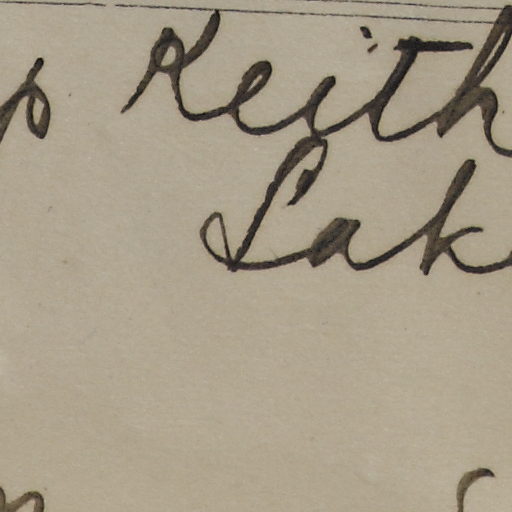 Keith
Lak